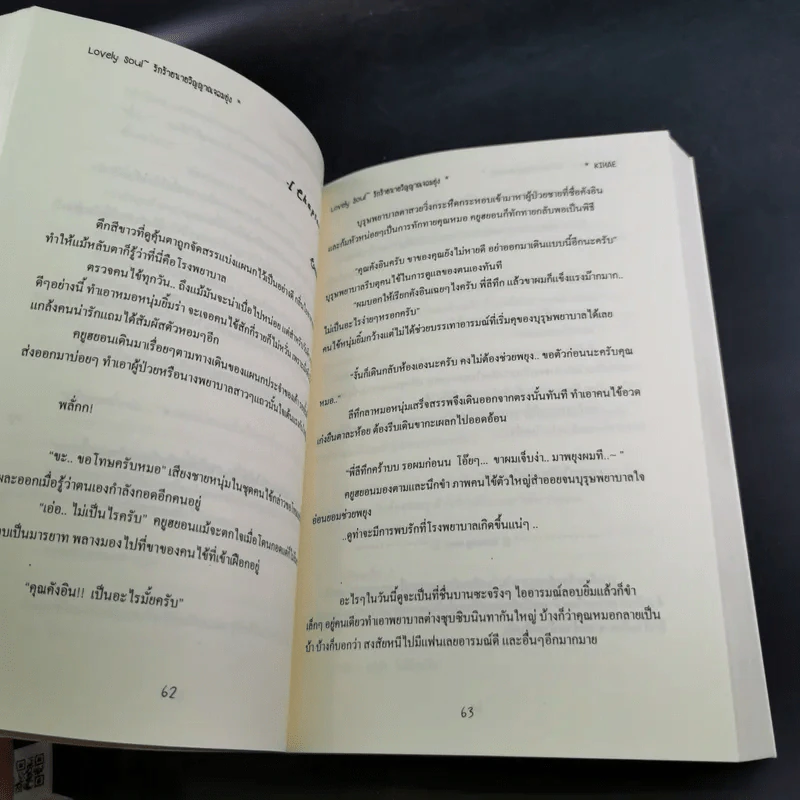 Lovely Soul~ รักร้ายนายวิญญาณจอมยุ่ง *
ตึกสีขาวที่ดูคุ้นตาถูกจัดสรรแบ่งแผนกไว้เป็นอย่างดี
ทำให้แม้หลับตาก็รู้ว่าที่นี่คือโรงพยาบาล
ตรวจคนไข้ทุกวัน.. ถึงแม้มันจะน่าเบื่อไปหน่อย
ดีๆอย่างนี้ ทำเอาหมอหนุ่มยิ้มร่า จะเจอคนไข้สักกี่รายก็ไม่หวั่น
แกล้งคนน่ารักแถมได้สัมผัสตัวหอมๆอีก
คยูฮยอนเดินมาเรื่อยๆตามทางเดินของแผนกประจำของ
ส่งออกมาบ่อยๆ ทำเอาผู้ป่วยหรือนางพยาบาลสาวๆแถวนั้นใจเต้น
พลั่กก!
"ขะ.. ขอโทษครับหมอ" เสียงชายหนุ่มในชุดคนไข้กล่าว
ผละออกเมื่อรู้ว่าตนเองกำลังกอดอีกคนอยู่
"เอ่อ.. ไม่เป็นไรครับ" คยูฮยอนแม้จะตกใจเมื่อโดนกอด
เป็นมารยาท พลางมองไปที่ขาของคนไข้ที่เข้าเฝือกอยู่
"คุณคังอิน!! เป็นอะไรมั้ยครับ"
62
Lovely Soul~ รักร้ายนายวิญญาณจอมยุ่ง *
* KIHAE
บุรุษพยาบาลตาสวยวิ่งกระหืดกระหอบเข้ามาหาผู้ป่วยชายที่ชื่อคังอิน
และก้มหัวหน่อยๆเป็นการทักทายคุณหมอ คยูฮยอนก็ทักทายกลับพอเป็นพิธี
"คุณคังอินครับ ขาของคุณยังไม่หายดี อย่าออกมาเดินแบบนี้อีกนะครับ"
บุรุษพยาบาลรีบดุคนไข้ในการดูแลของตนเองทันที
"ผมบอกให้เรียกคังอินเฉยๆไงครับ พี่ลีทึก แล้วขาผมก็แข็งแรงม๊ากมาก..
ไม่เป็นอะไรง่ายๆหรอกครับ"
คนไข้หนุ่มยิ้มกว้างแต่ไม่ได้ช่วยบรรเทาอารมณ์ที่เริ่มดุของบุรุษพยาบาลได้เลย
"งั้นก็เดินกลับห้องเองนะครับ คงไม่ต้องช่วยพยุง.. ขอตัวก่อนนะครับคุณ
หมอ.."
ลีทึกลาหมอหนุ่มเสร็จสรรพจึงเดินออกจากตรงนั้นทันที ทำเอาคนไข้อวด
เก่งยืนตาละห้อย ต้องรีบเดินขากะเผลกไปออดอ้อน
"พี่ลีทึกคร้าบบ รอผมก่อนน โอ๊ยๆ... ขาผมเจ็บง่า.. มาพยุงผมที..~ "
คยูฮยอนมองตามและนึกขำ ภาพคนไข้ตัวใหญ่สำออยจนบุรุษพยาบาลใจ
อ่อนยอมช่วยพยุง
..ดูท่าจะมีการพบรักที่โรงพยาบาลเกิดขึ้นแน่ๆ ..
อะไรๆในวันนี้ดูจะเป็นที่ชื่นบานซะจริงๆ ไออารมณ์ลอบยิ้มแล้วก็ขำ
เล็กๆ อยู่คนเดียวทำเอาพยาบาลต่างซุบซิบนินทากันใหญ่ บ้างก็ว่าคุณหมอกลายเป็น
บ้า บ้างก็บอกว่า สงสัยหนีไปมีแฟนเลยอารมณ์ดี และอื่นๆอีกมากมาย
63